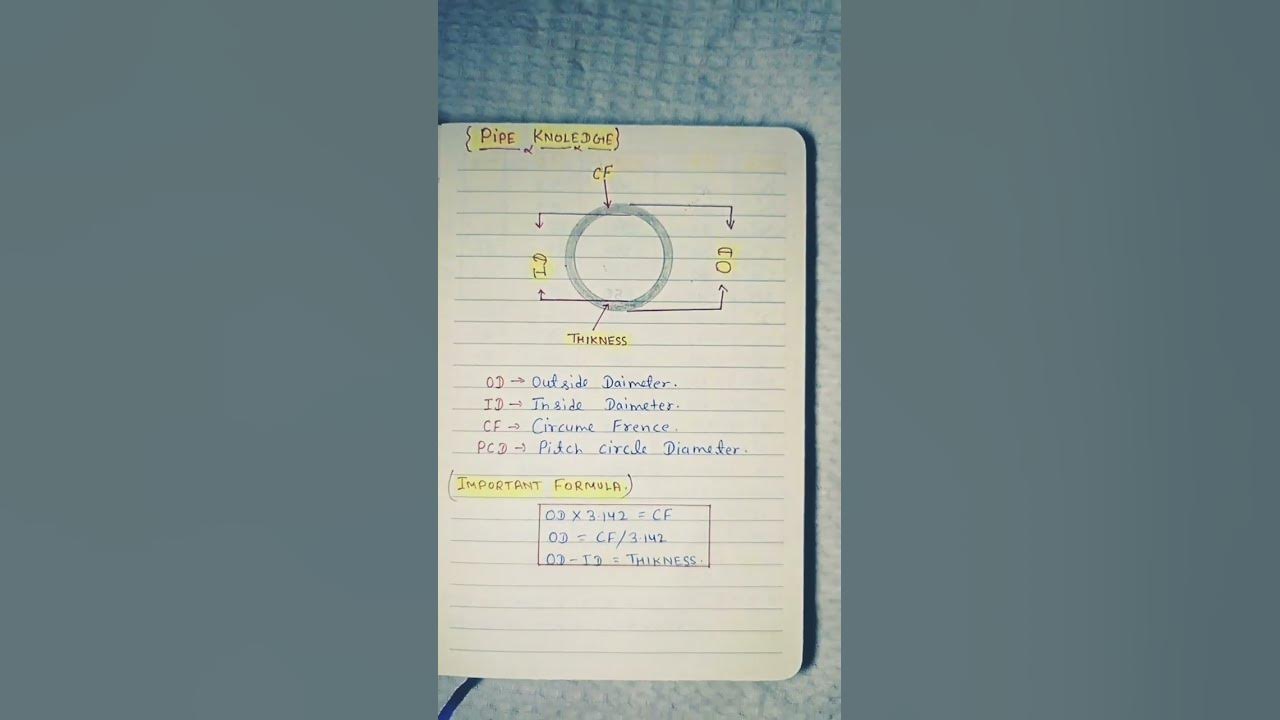 { PIPE KNOLEDGE}
CF
ID
OD
THIKNESS
OD → Outside Daimeter.
ID → Inside Daimeter.
CF → Circume Frence.
PCD → Pitch circle Diameter.
(IMPORTANT FORMULA.)
OD X 3.142 = CF
OD = CF/3.142
OD - ID = THIKNESS.